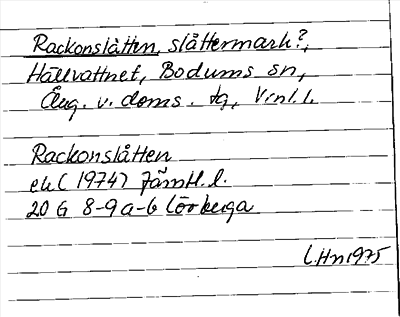 Rackonslåtten, slåttermark?,
Hällvattnet, Bodums sn,
Ång. v. doms. tg, Vrnl. l.
Rackonslåtten
ek (1974) Jämtl. l.
20 G 8-9 a-b Lövberga
L.Hn 1975